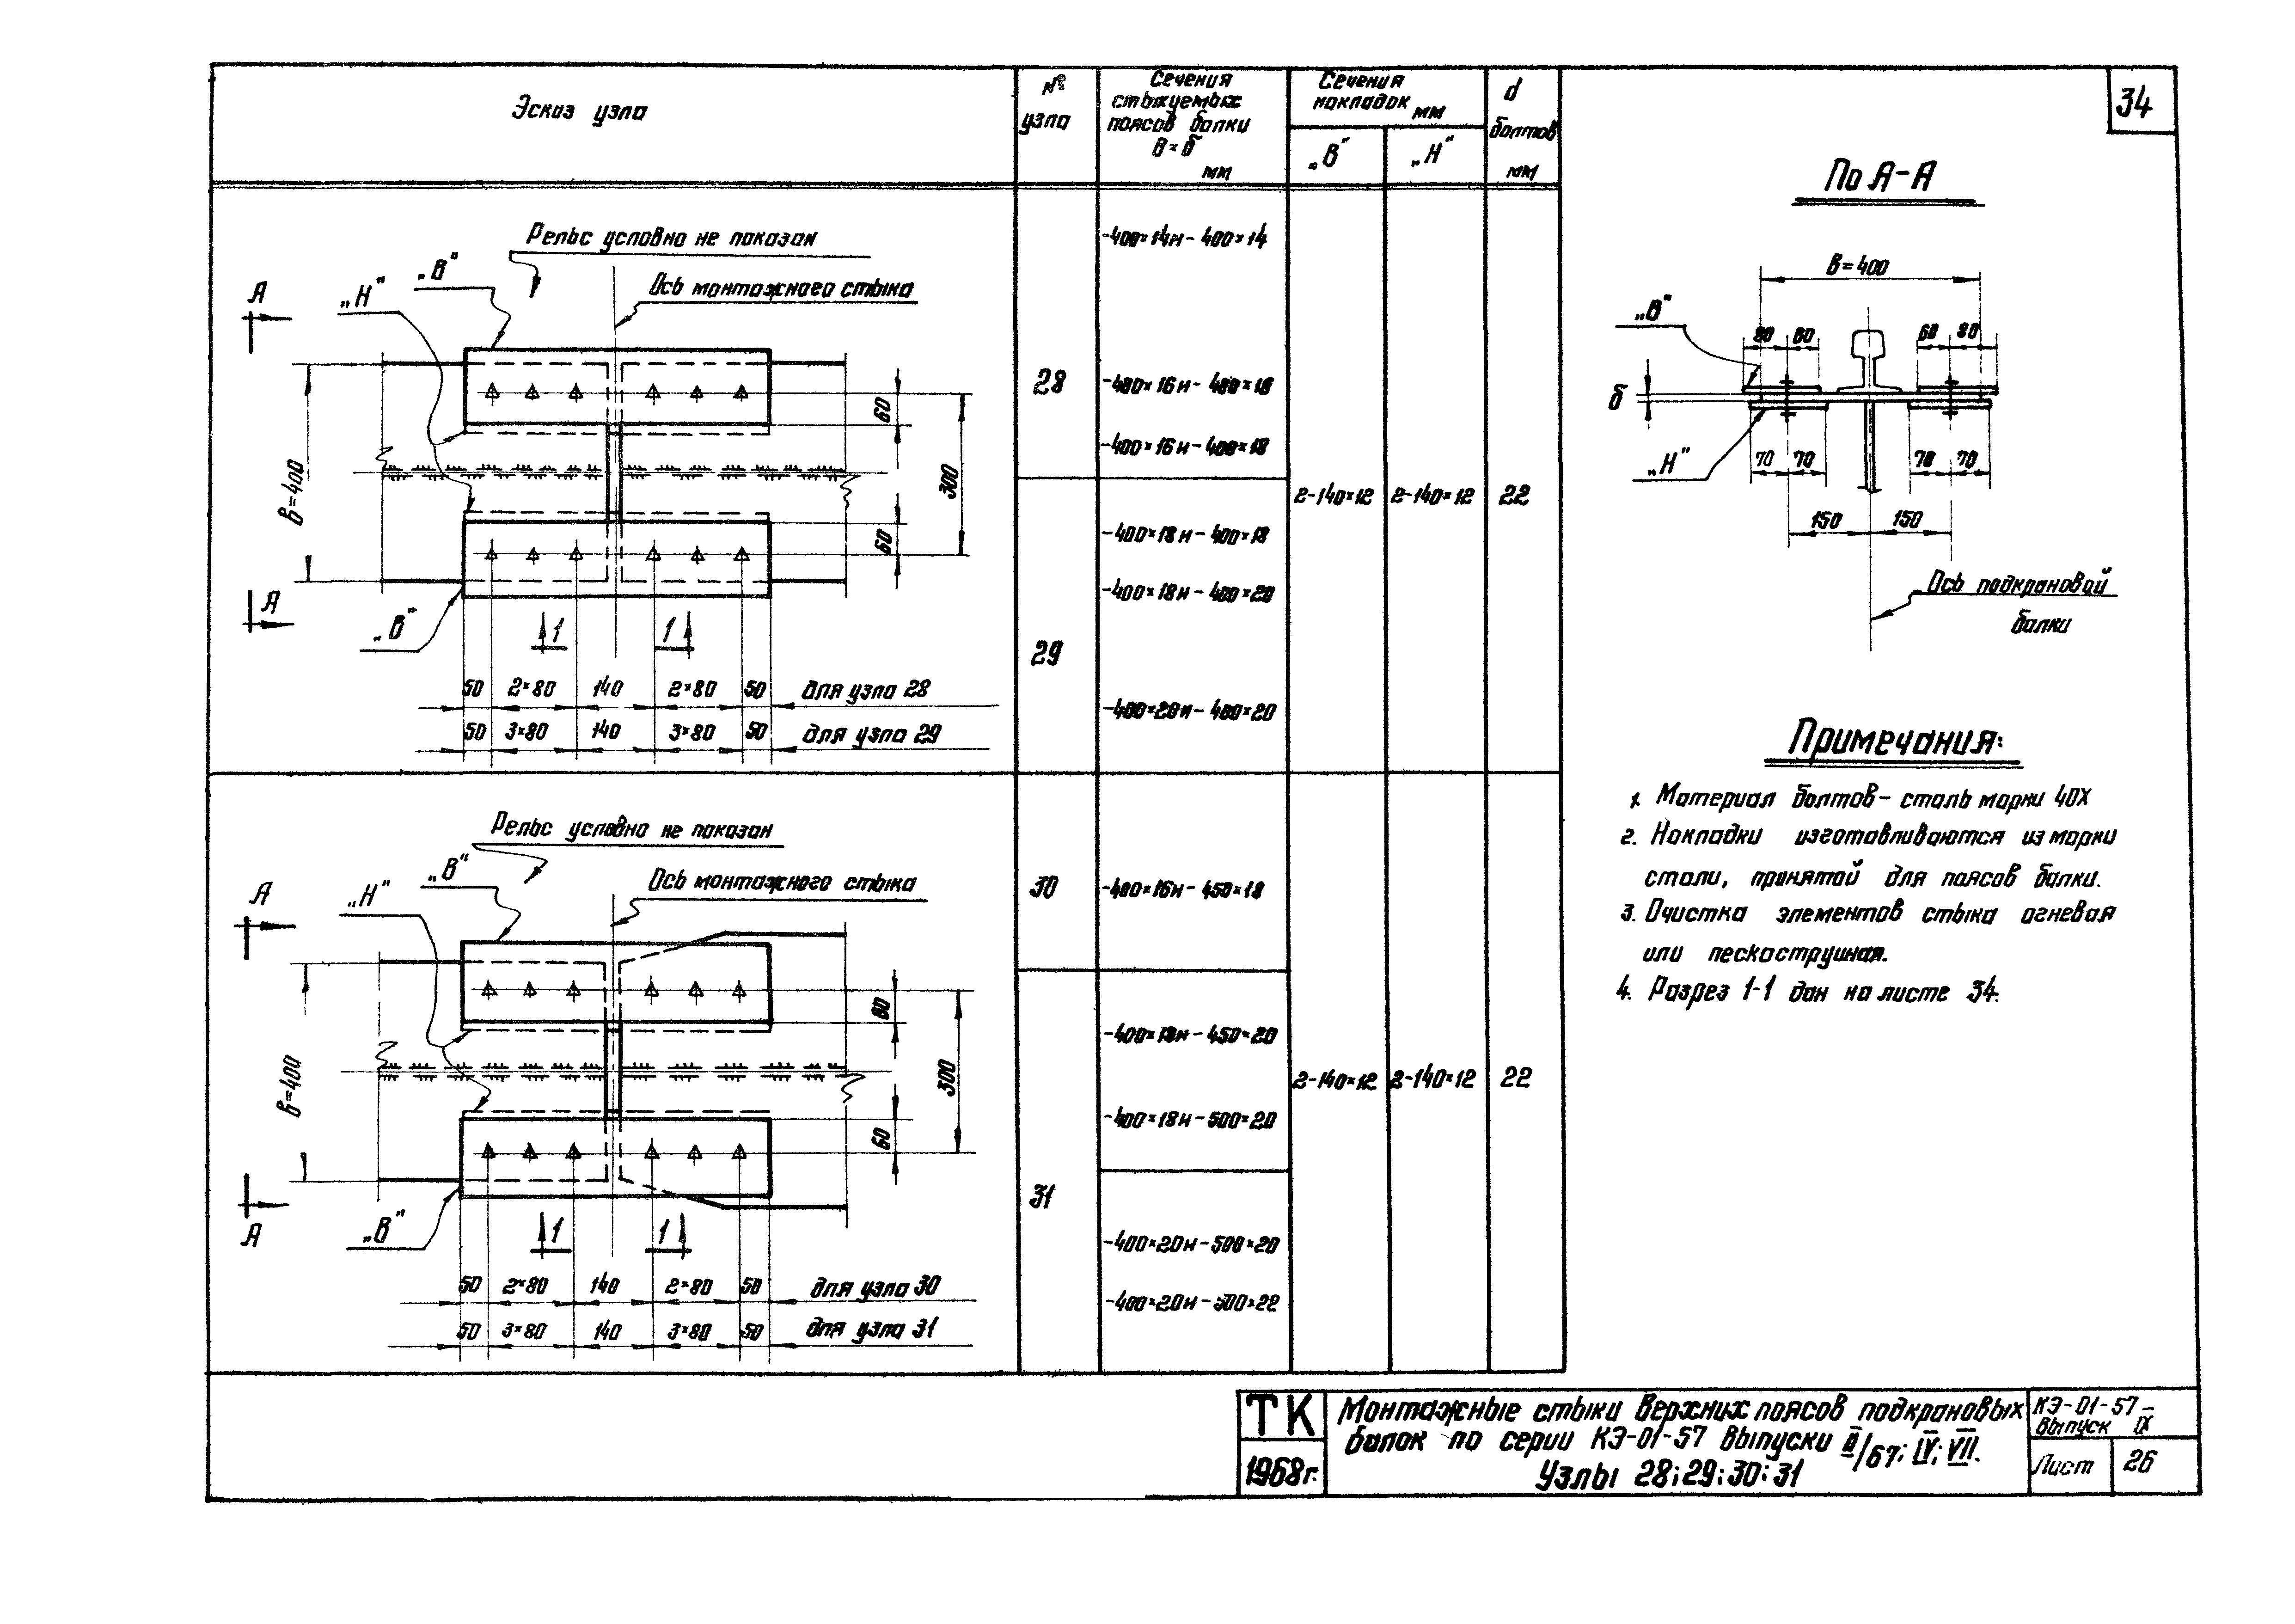 34
Эскиз узла
№ узла
Сечения
стыкуемых
поясов балки
в×δ
мм
Сечения
накладок мм
„В“
„Н“
d
болтов
мм
Рельс условно не показан
Ось монтажного стыка
„В“
„Н“
А
А
в=400
60
300
60
„В“
1 1
50 2×80 140 2×80 50 для узла 28
50 3×80 140 3×80 50 для узла 29
28
-400×14 и -400×14
-400×16 и -400×16
-400×16 и -400×18
29
-400×18 и -400×18
-400×18 и -400×20
-400×20 и -400×20
2-140×12
2-140×12
22
Рельс условно не показан
Ось монтажного стыка
„В“
„Н“
А
А
в=400
60
300
60
„В“
1 1
50 2×80 140 2×80 50 для узла 30
50 3×80 140 3×80 50 для узла 31
30
-400×16 и -450×18
31
-400×18 и -450×20
-400×18 и -500×20
-400×20 и -500×20
-400×20 и -500×22
2-140×12
2-140×12
22
По А-А
в=400
„В“
80 60 60 80
δ
„Н“
70 70 70 70
150 150
Ось подкрановой
балки
Примечания:
1. Материал болтов – сталь марки 40Х
2. Накладки изготавливаются из марки
стали, принятой для поясов балки.
3. Очистка элементов стыка огневая
или пескоструйная.
4. Разрез 1-1 дан на листе 34.
ТК
1968г.
Монтажные стыки верхних поясов подкрановых
балок по серии КЭ-01-57 выпуски II/67; IV; VII.
Узлы 28; 29; 30; 31
КЭ-01-57
Выпуск IX
Лист 26